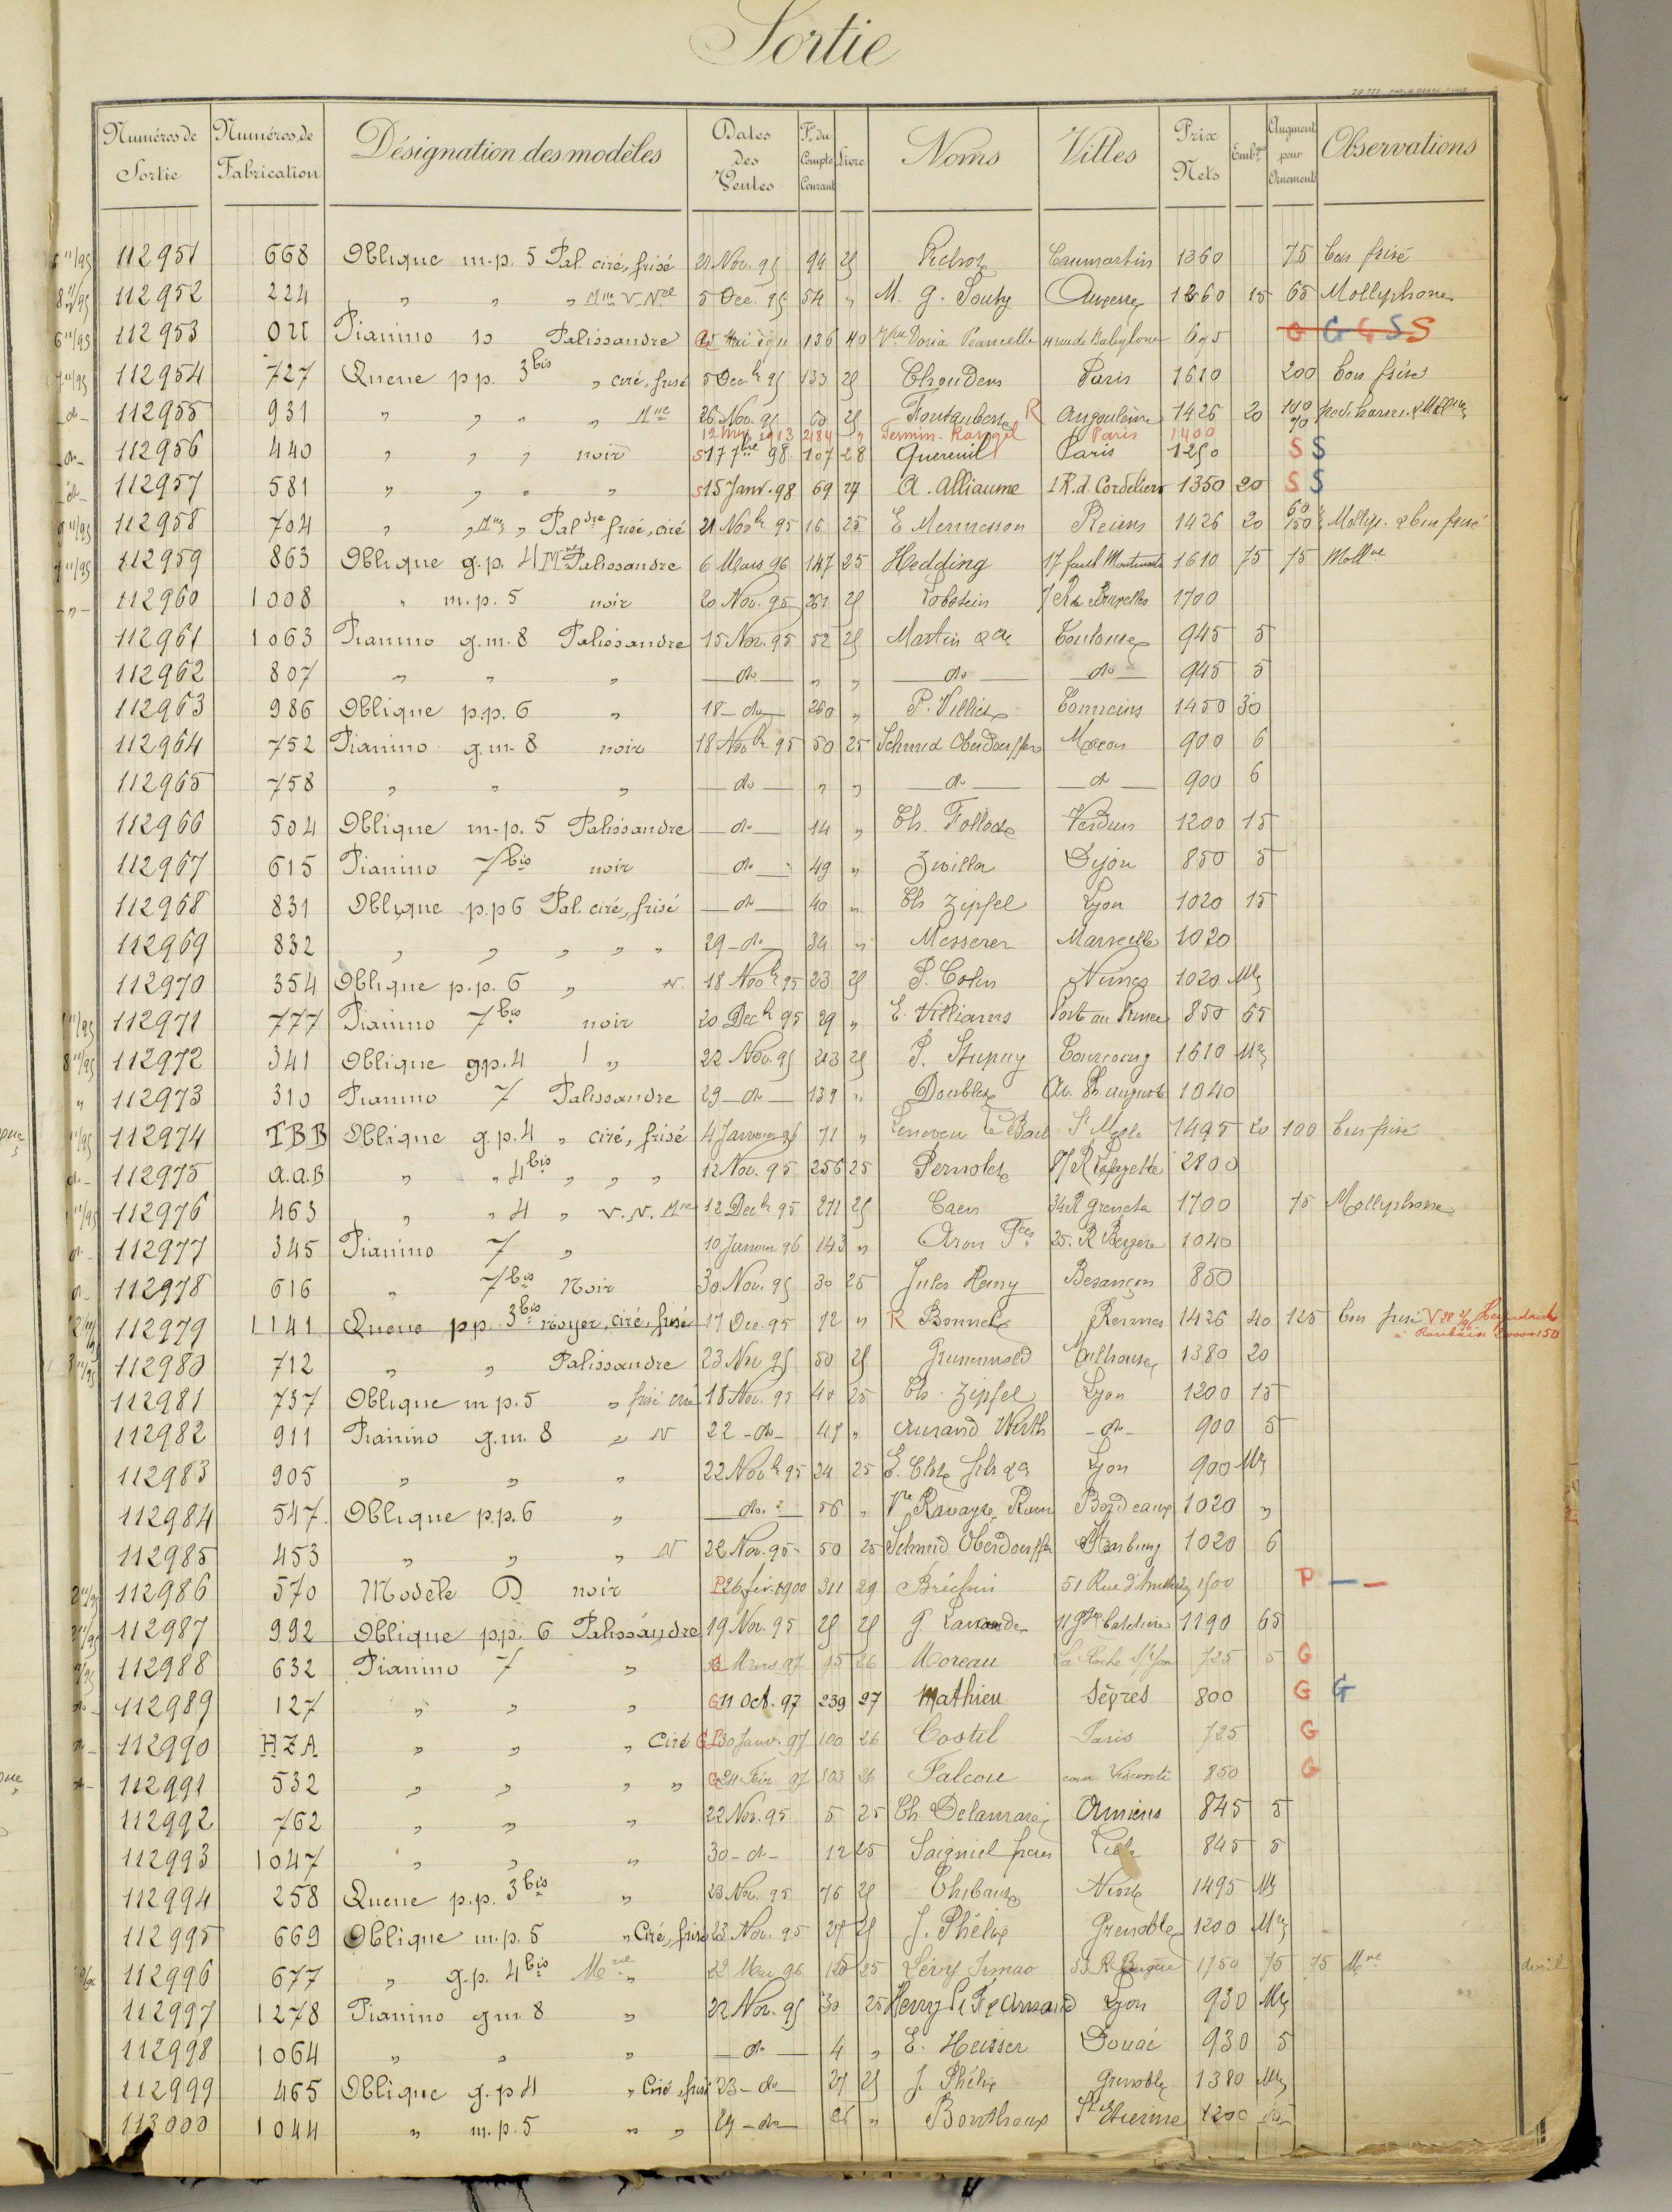 Sortie
Numéros de Sortie Numéros de Fabrication Désignation des modèles Dates des Ventes Fo. du Compte Courant Livre Noms Villes Prix Nets Emb.ge Augment. pour Ornement Observations
112951 668 Oblique m.p. 5 Pal. ciré, frisé 20 Nov. 95 94 25 Caumartin 1360 75 bois frisé
112952 224 " " " Mne V. Nel 5 Dec. 95 54 " M. G. Souby Auxerre 1260 15 65 Mollyphone
112953 OU Pianino 10 Palissandre 136 40 4 rue de Babylone 695 G G G S S
112954 727 Queue p.p. 3bis " ciré, frisé 5 Decb 95 133 25 Choudens Paris 1610 200 bois frisé
112955 931 " " " " Mne 26 Nov. 95 60 25 R Angoulème 1426 20
12 1913 284 " Fermin Rangel Paris 1400
112956 440 " " " noir S 17 7bre 98 107 28 Quereuil Paris 1250 S S
112957 581 " " " " S 15 Janv. 98 69 27 A. Alliaume 1 R. d. Cordeliers 1350 20 S S
112958 704 " " Mne " Paldre frisé, ciré 21 Novb 95 16 25 E Mennesson Reims 1426 20 60 150 Mollyp. & bois frisé
112959 863 Oblique g.p. 4 Mne Palissandre 6 Mars 96 147 25 Hedding 17 faub Montmartre 1610 75 75 Mollne
112960 1008 " m.p. 5 noir 20 Nov. 95 261 25 Lobstein 7 R de Bruxelles 1700
112961 1063 Pianino g.m. 8 Palissandre 15 Nov. 95 52 25 Martin & Cie Toulouse 945 5
112962 807 " " " do " " do do 945 5
112963 986 Oblique p.p. 6 " 18 do 260 " P. Villiers 1450 30
112964 752 Pianino g.m. 8 noir 18 Novb 95 50 25 Schmid Oberdoerffer 900 6
112965 758 " " " do " " do do 900 6
112966 504 Oblique m.p. 5 Palissandre do 14 " Ch. Follode Verdun 1200 15
112967 615 Pianino 7bis noir do 49 " Zwilla Dijon 850 5
112968 831 Oblique p.p 6 Pal. ciré, frisé do 40 " Ch Zipfel Lyon 1020 15
112969 832 " " " " " 29 do 34 " Messerer Marseille 1020
112970 354 Oblique p.p. 6 " N. 18 Novb 95 23 25 P. Colin Nîmes 1020
112971 777 Pianino 7bis noir 20 Decb 95 29 " E. Williams Port au Prince 850 65
112972 341 Oblique gp. 4 " 22 Nov. 95 213 25 P. Stupuy Tourcoing 1610
112973 310 Pianino 7 Palissandre 29 do 139 " Doublet Av. Ph. Auguste 1040
112974 IBB Oblique g.p. 4 " ciré, frisé 4 Janvier 96 71 " Leneveu 1495 20 100 bois frisé
112975 A.A.B " " 4bis " " " 12 Nov. 95 256 25 Pernolet 87 R Lafayette 2800
112976 463 " " 4 " V. N. Mne 12 Decb 95 211 25 Caen 34 R Greneta 1700 75 Mollyphone
112977 345 Pianino 7 " 10 Janvier 96 143 " Aron Fres 25. R Bergère 1040
112978 616 " 7bis Noir 30 Nov. 95 30 25 Jules Henry Besançon 850
112979 1141 Queue pp. 3bis noyer, ciré, frisé 17 Dec. 95 12 " R Bonnel Rennes 1426 40 125 bois frisé
112980 712 " " Palissandre 23 Nov 95 50 25 Grunenwald Mulhouse 1380 20
112981 737 Oblique m p. 5 " frisé ciré 18 Nov. 95 40 25 Ch. Zipfel Lyon 1200 15
112982 911 Pianino g.m. 8 " N 22 do 45 " Aurand Wirth do 900 5
112983 905 " " " 22 Novb 95 24 25 E. Clot fils & Cie Lyon 900
112984 547. Oblique p.p. 6 " do. 56 " Bordeaux 1020 "
112985 453 " " " N 22 Nov. 95 50 25 Schmid Oberdoerffer Strasburg 1020 6
112986 570 Modèle D noir P 26 fév. 1900 311 29 Bréchin 1500 P
112987 992 Oblique pp. 6 Palissandre 19 Nov. 95 25 25 G Lavande 1190 65
112988 632 Pianino 7 " Mars 97 15 26 Moreau La Roche S/ Yon 725 5 G
112989 127 " " " G 11 Oct. 97 239 27 Mathieu Sèvres 800 G G
112990 HZA " " " Ciré 30 Janv. 97 100 26 Costil Paris 725 G
112991 532 " " " " G 24 Fév 97 103 26 Falcou Visconti 850 G
112992 762 " " " 22 Nov. 95 5 25 Ch. Delamarre Amiens 845 5
112993 1047 " " " 30 do 12 25 Saigniel frères 845 5
112994 258 Queue p.p. 3bis " 23 Nov. 95 76 25 Thibault Niort 1495
112995 669 Oblique m.p. 5 " Ciré, frisé 23 Nov. 95 27 25 J. Phélix Grenoble 1200
112996 677 " g.p. 4bis Mne " 25 Lévy 53 R. Bergère 1750 75 75 Mne
112997 1278 Pianino gm 8 " 22 Nov. 95 30 25 Lyon 930
112998 1064 " " " do 4 " E. Heisser Douai 930 5
112999 465 Oblique g.p 4 " Ciré, frisé 23 do 27 25 J. Phélix Grenoble 1380
113000 1044 " m.p. 5 " " 29 do 26 " Bonthoux St Etienne 1200